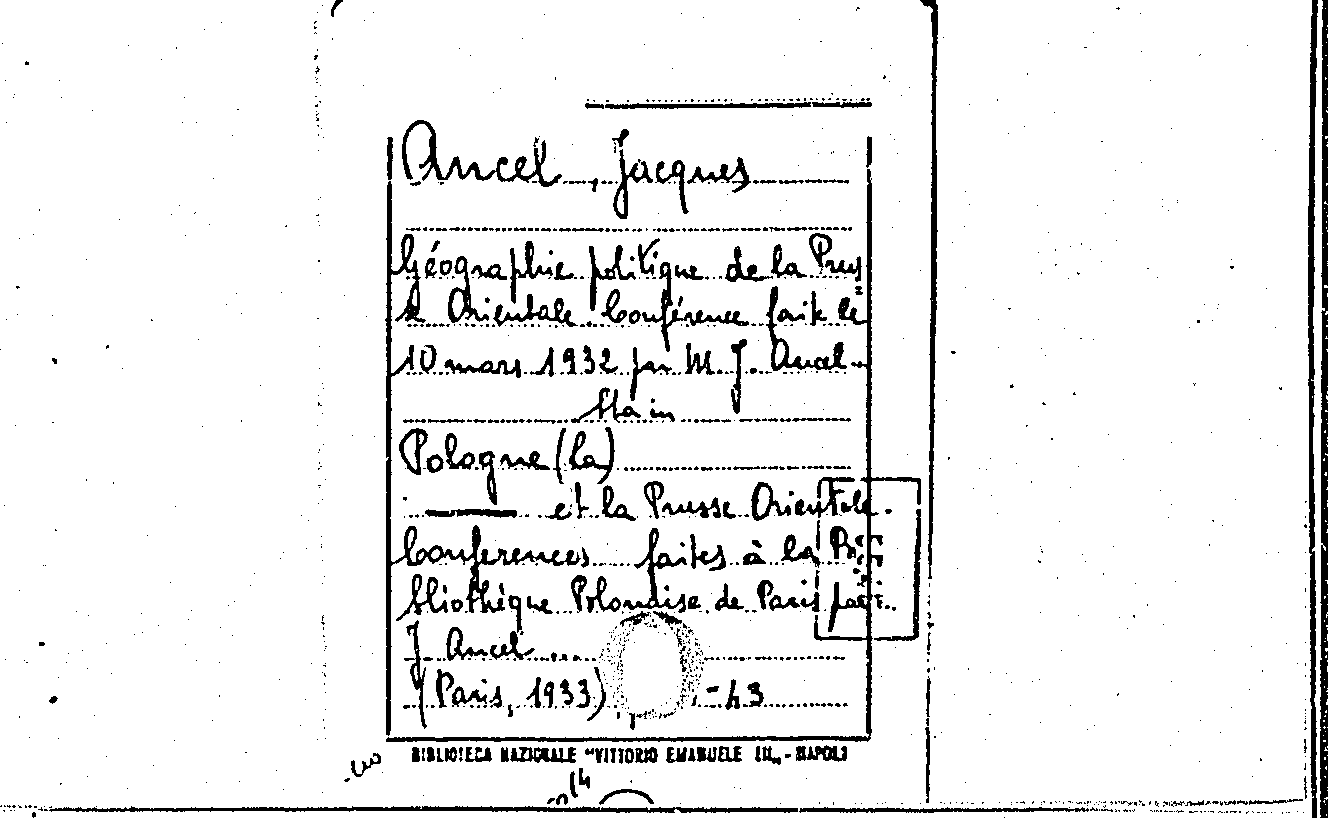 Ancel, Jacques
Géographie politique de la Prus=
se Orientale. Conférence faite le
10 mars 1932 par M. J. Ancel..
Sta in
Pologne (la)
et la Prusse Orientale.
Conferences faites à la Bi=
bliothèque Polonaise de Paris par:
J Ancel ...
(Paris, 1933)
BIBLIOTECA NAZIONALE "VITTORIO EMANUELE III„ - NAPOLI
14